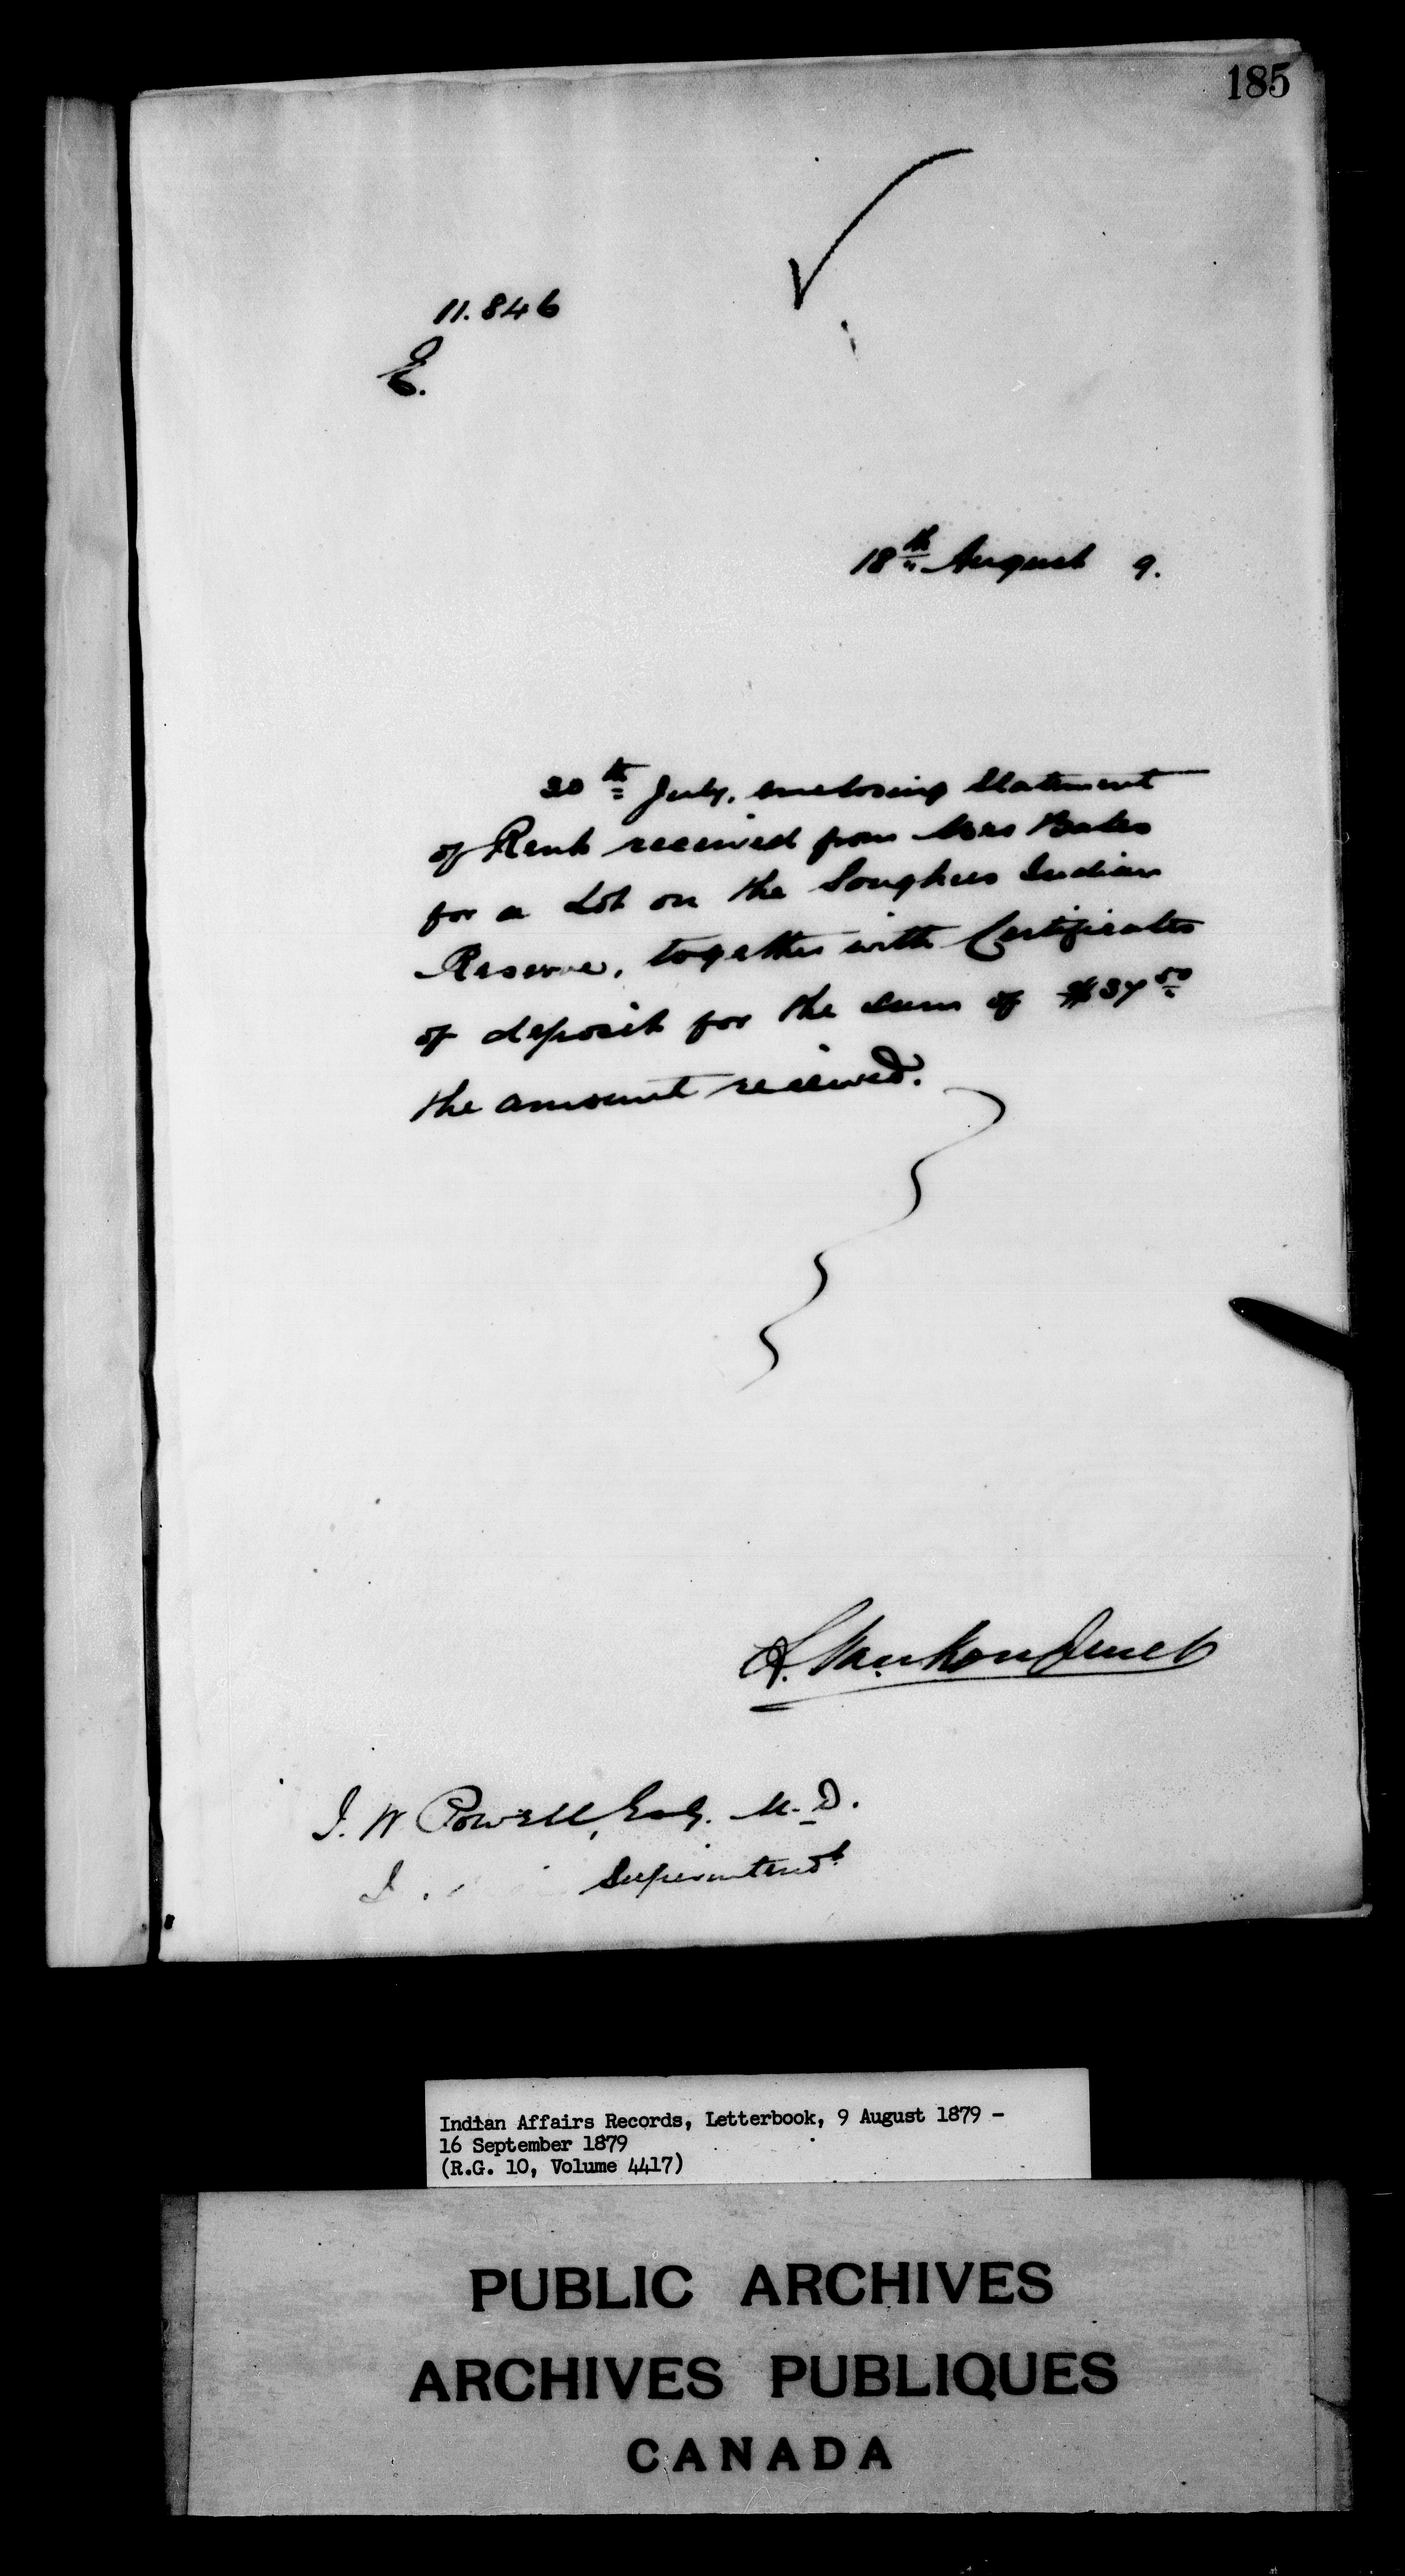 185
11.846
E.
18th August 9.
30th July, enclosing Statement
of Rent received from Mrs Bales
for a Lot on the Songhees Indian
Reserve, together with Certificates
of deposit for the sum of $37 50
the amount received.
L. VanKoughnet
I. W Powell, Esq. M.D.
I. Superintendt
Indian Affairs Records, Letterbook, 9 August 1879 -
16 September 1879
(R.G. 10, Volume 4417)
PUBLIC ARCHIVES
ARCHIVES PUBLIQUES
CANADA